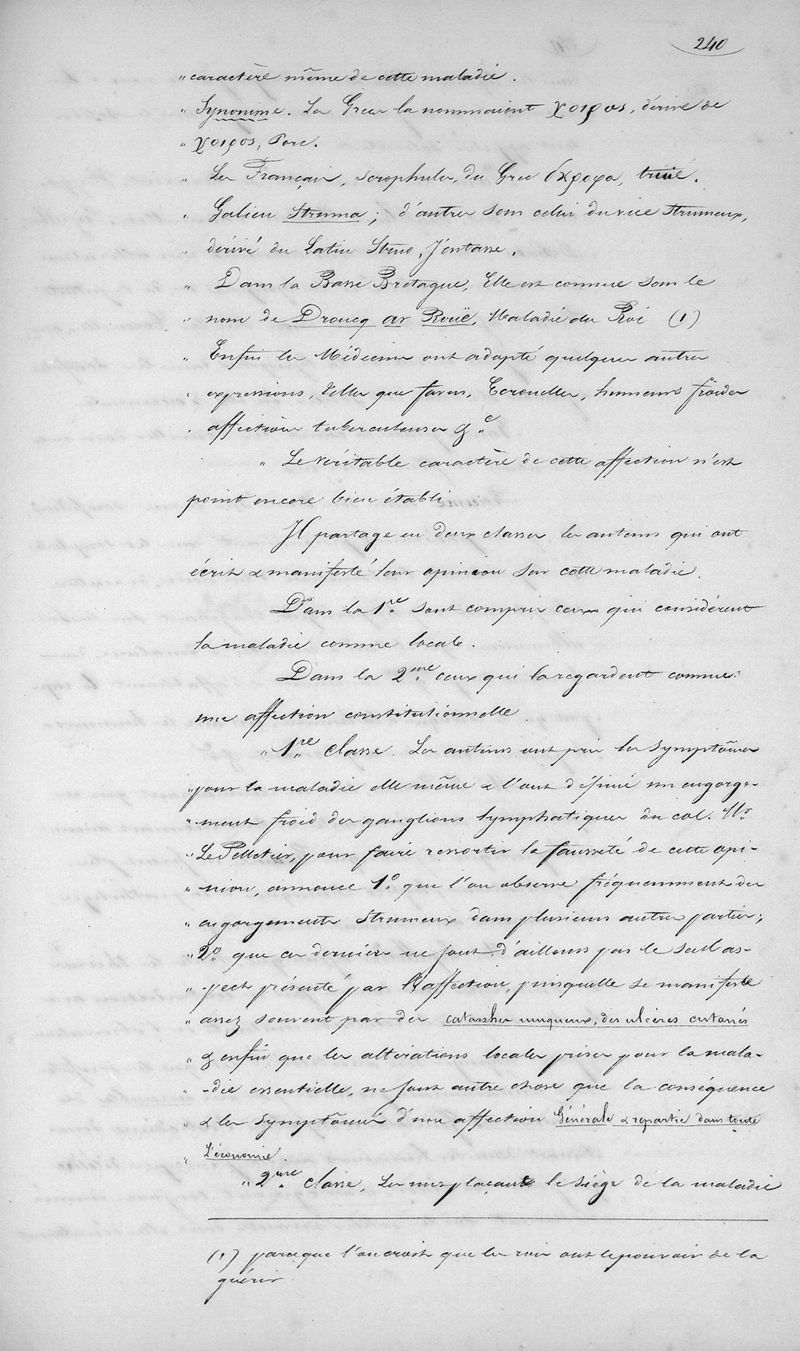 240
" caractère même de cette maladie.
" Synonime. Les Grecs la nommaient χοιρος, dérivé de
" χοιρος, Porc.
" Les Français, scrophules, du Grec truie.
" Galien Struma; d'autres sous celui du vice Strumeux,
" dérivé du Latin Struo, J'entasse.
" Dans la Basse Bretagne, Elle est connue sous le
" nom de Droucq ar Rouë, Maladie du Roi (1)
" Enfin les Médecins ont adopté quelques autres
" expressions, telles que favus, Ecrouelles, humeurs froides
" affections tuberculeuses &c
" Le véritable caractère de cette affection n'est
point encore bien établi.
Il partage en deux classes les auteurs qui ont
écrit & manifesté leur opinion sur cette maladie.
Dans la 1re sont compris ceux qui considèrent
la maladie comme locale.
Dans la 2eme ceux qui la regardent comme
une affection constitutionnelle.
" 1re Classe. Les auteurs ont pris les Symptômes
" pour la maladie elle même & l'ont définie un engorge-
" ment froid des ganglions lymphatiques du col. Mr
" Le Pelletier, pour faire ressortir la fausseté de cette opi-
" nion, annonce 1o que l'on observe fréquemment des
" engorgements Strumeux dans plusieurs autres parties;
" 2o que ces derniers ne sont d'ailleurs pas le seul as-
" pect présenté par l'affection, puisqu'elle se manifeste
" assez souvent par des catarrhes muqueux, des ulcères cutanés
" & enfin que les altérations locales prises pour la mala-
" -die essentielle, ne sont autre chose que la conséquence
" & les Symptômes d'une affection Générale & répartie dans toute
" L'économie.
" 2eme Classe, Les uns plaçant le siège de la maladie
(1) parceque l'on croit que les rois ont le pouvoir de la
guérir.